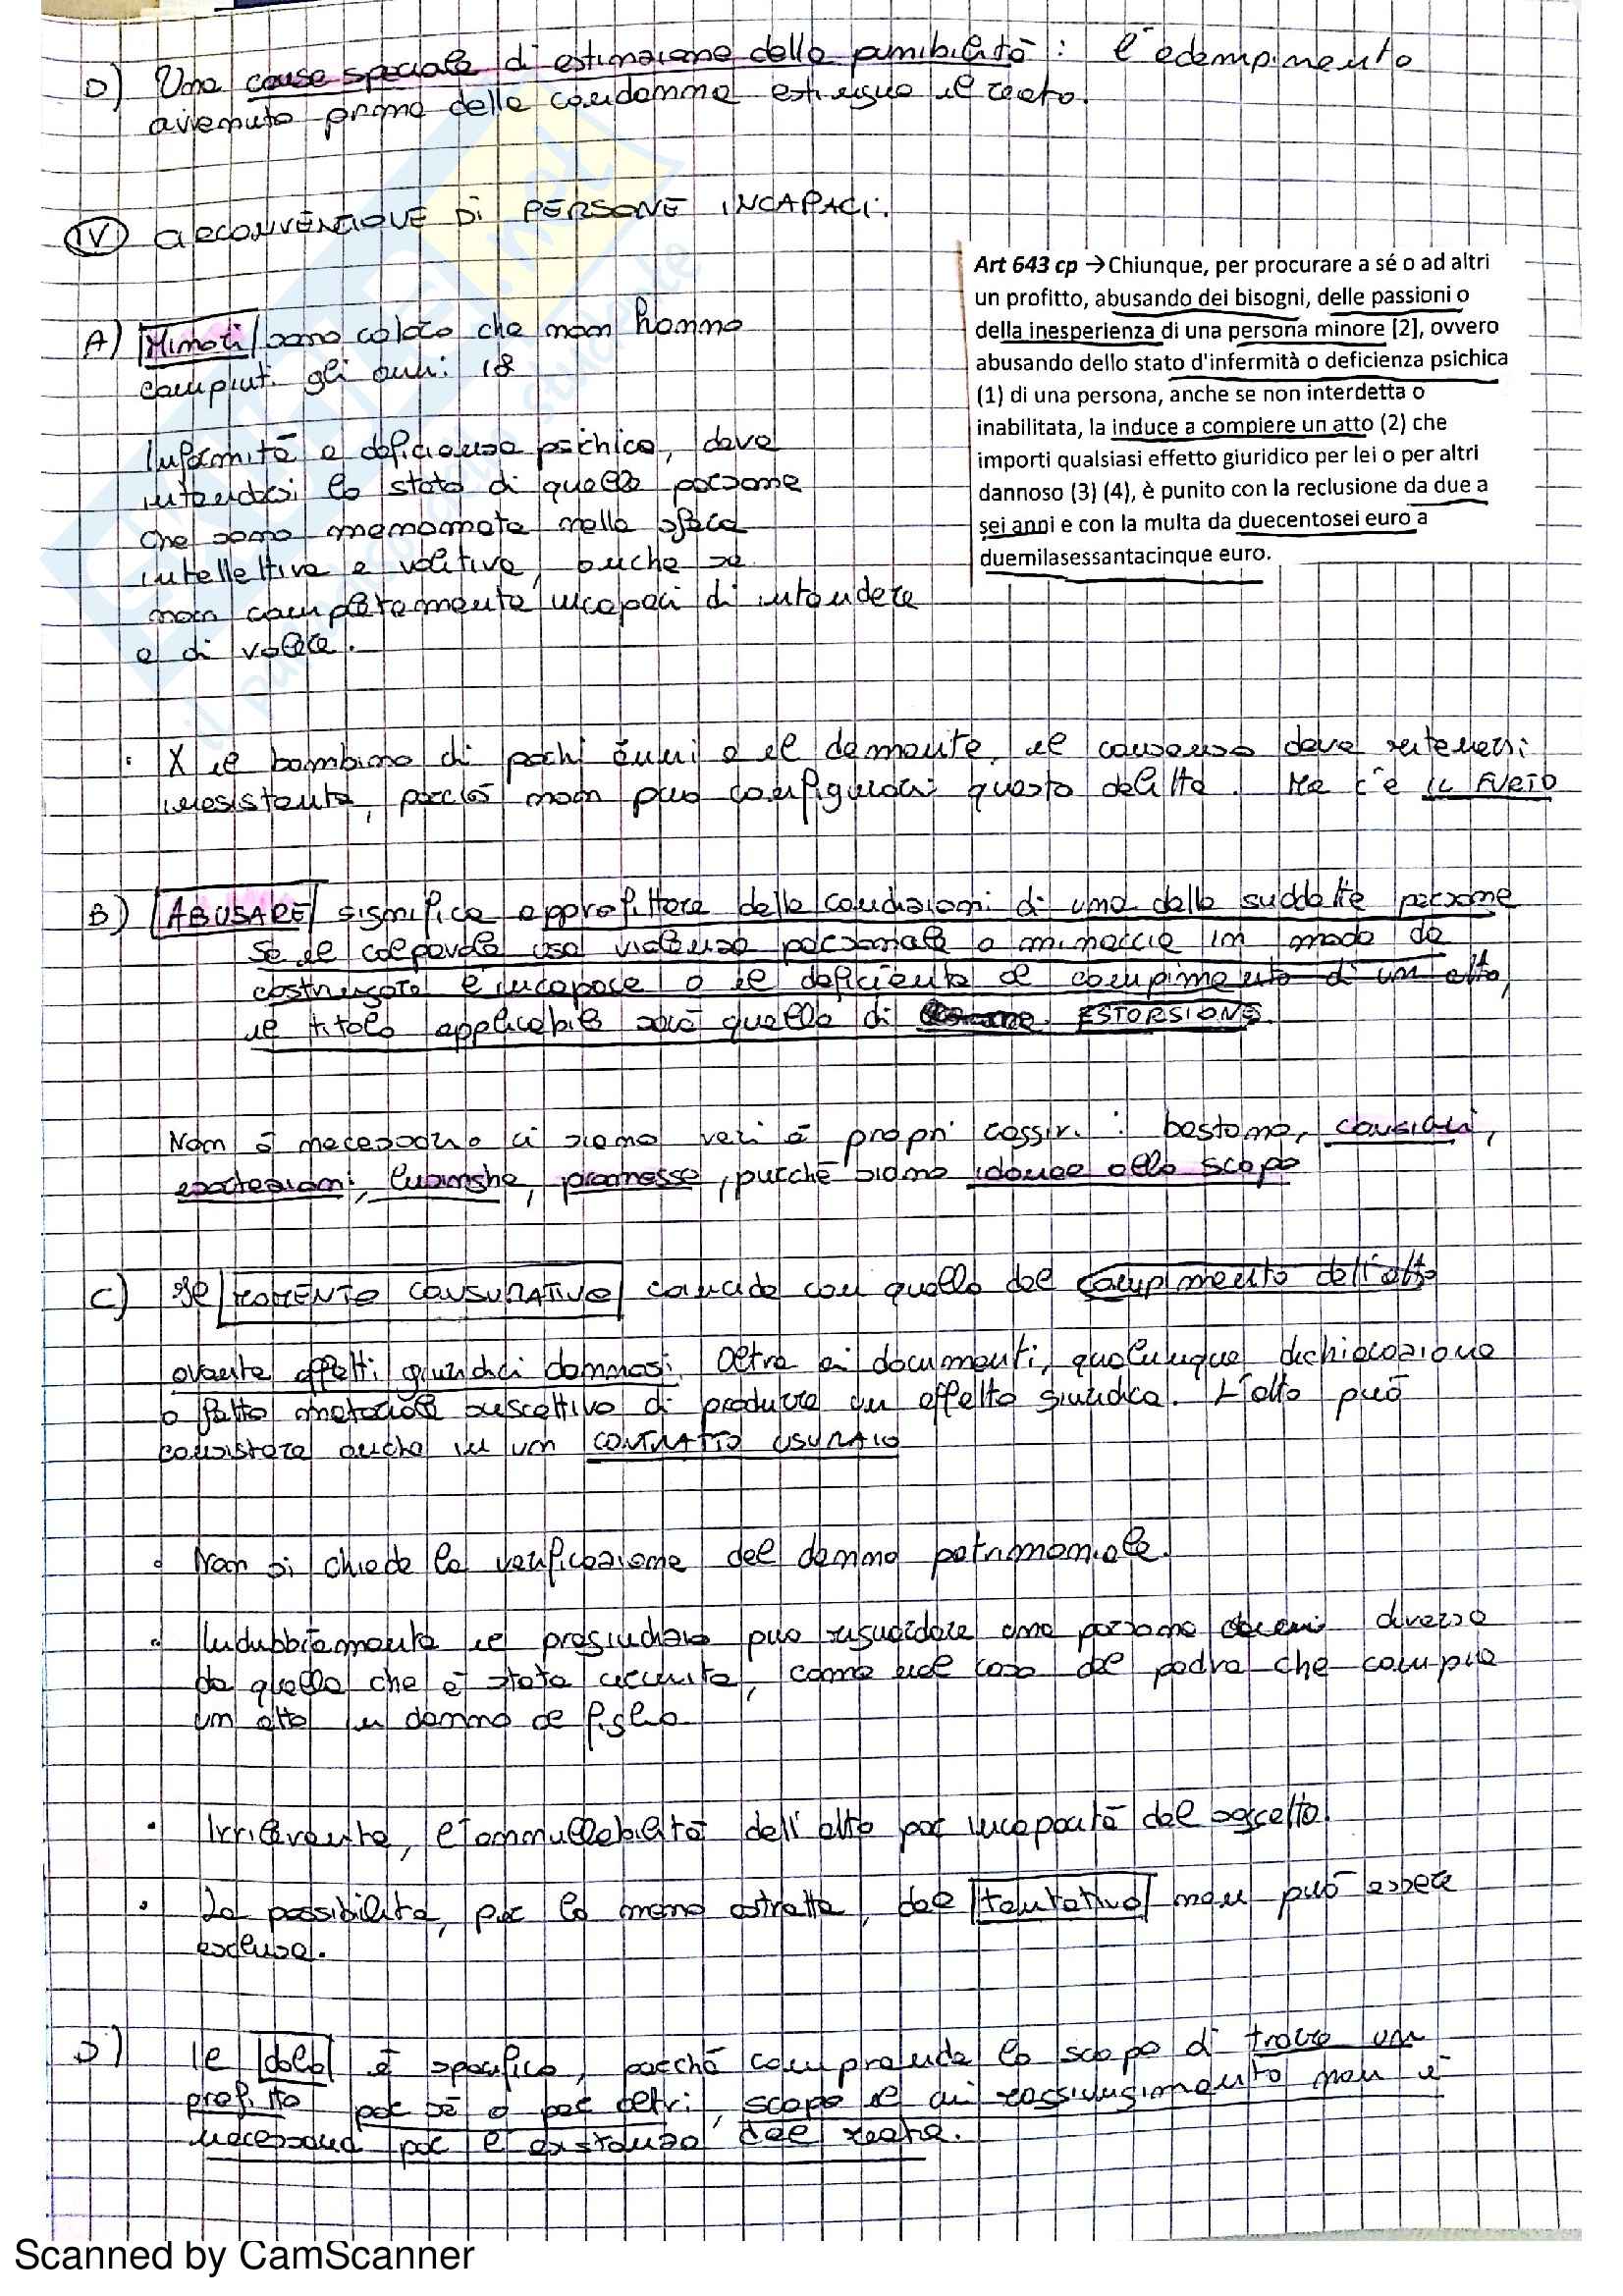 D) Una causa speciale di estinzione della punibilità: l'adempimento
avvenuto prima della condanna estingue il reato.
IV CIRCONVENZIONE DI PERSONE INCAPACI.
Art 643 cp → Chiunque, per procurare a sé o ad altri
un profitto, abusando dei bisogni, delle passioni o
della inesperienza di una persona minore [2], ovvero
abusando dello stato d'infermità o deficienza psichica
(1) di una persona, anche se non interdetta o
inabilitata, la induce a compiere un atto (2) che
importi qualsiasi effetto giuridico per lei o per altri
dannoso (3) (4), è punito con la reclusione da due a
sei anni e con la multa da duecentosei euro a
duemilasessantacinque euro.
A) Minori sono coloro che non hanno
compiuti gli anni 18
Infermità e deficienza psichica, deve
intendersi lo stato di quelle persone
che sono menomate nella sfera
intellettiva e volitiva, anche se
non completamente incapaci di intendere
e di volere.
· X il bambino di pochi anni e il demente, il consenso deve ritenersi
inesistente, perciò non può configurarsi questo delitto. Ma c'è IL FURTO
B) ABUSARE significa approfittare delle condizioni di una delle suddette persone
se il colpevole usa violenza personale o minaccia in modo da
costringere l'incapace o il deficiente al compimento di un atto,
il titolo applicabile sarà quello di ESTORSIONE.
Non è necessario ci siano veri e propri raggiri: bastano, consigli,
esortazioni, lusinghe, promesse, purchè siano idonee allo scopo
C) Il MOMENTO CONSUMATIVO coincide con quello del compimento dell'atto
avente effetti giuridici dannosi. Oltre ai documenti, qualunque dichiarazione
o fatto materiale suscettivo di produrre un effetto giuridico. L'atto può
consistere anche in un CONTRATTO USURAIO
· Non si chiede la verificazione del danno patrimoniale.
· Indubbiamente il pregiudizio può riguardare una persona diversa
da quella che è stata circuita, come nel caso del padre che compie
un atto in danno al figlio
· Irrilevante, l'annullabilità dell'atto per incapacità del soggetto.
· La possibilità, per lo meno astratta, del tentativo non può essere
esclusa.
D) Il dolo è specifico, perchè comprende lo scopo di trarre un
profitto per sè o per altri, scopo il cui raggiungimento non è
necessario per l'esistenza del reato.
Scanned by CamScanner